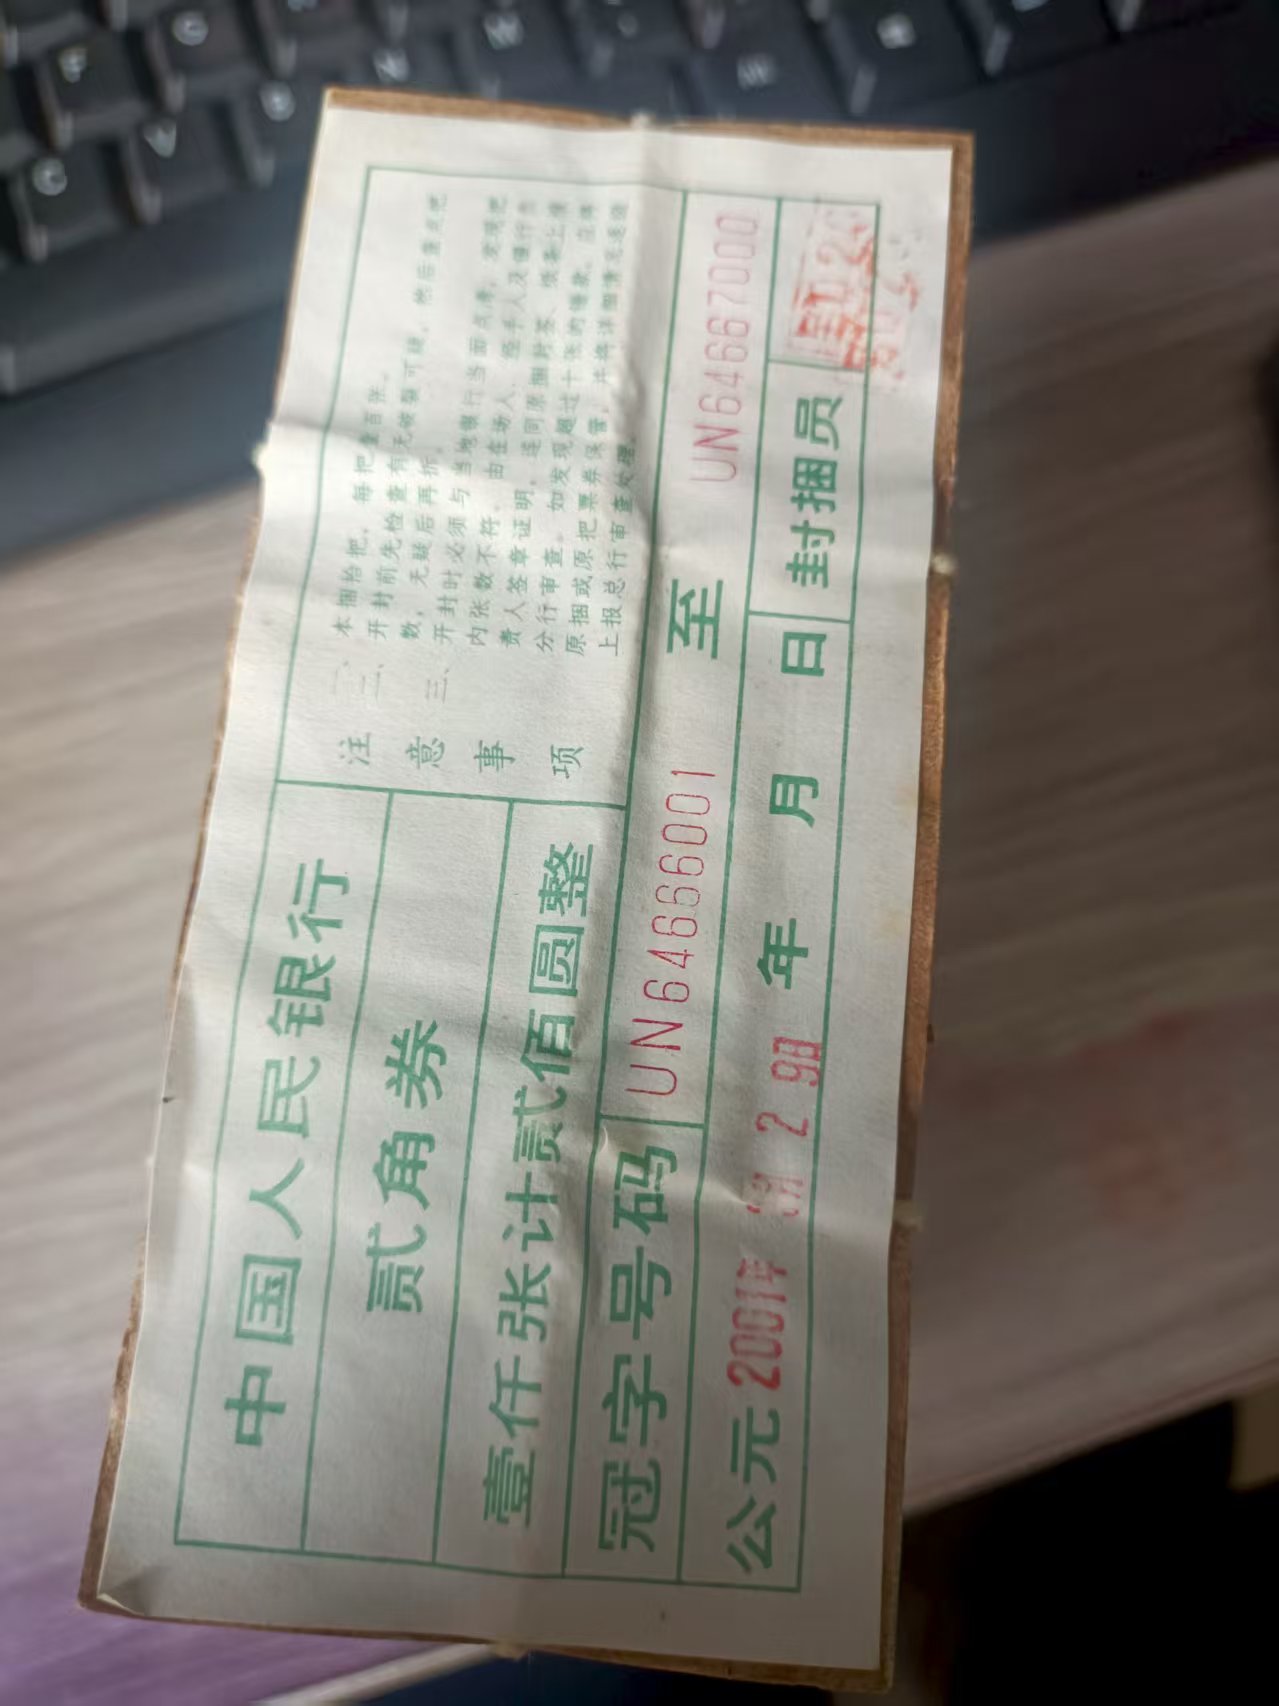 中国人民银行
贰角券
壹仟张计贰佰圆整
注意事项
一、本捆拾把,每把壹百张。
二、开封前先检查有无破裂可疑,然后查点把
数,无疑后再拆。
三、开封时必须与当地银行当面点清,发现把
内张数不符,由在场人、经手人及银行负
责人签章证明,连同原捆封签、烧条上报
分行审查。如发现超过十张的错款,应将
原捆或原把票券保管,并将详细情况逐级
上报总行审查处理。
冠字号码 UN6466001 至 UN6467000
公元2001年 2 9日 年 月 日 封捆员